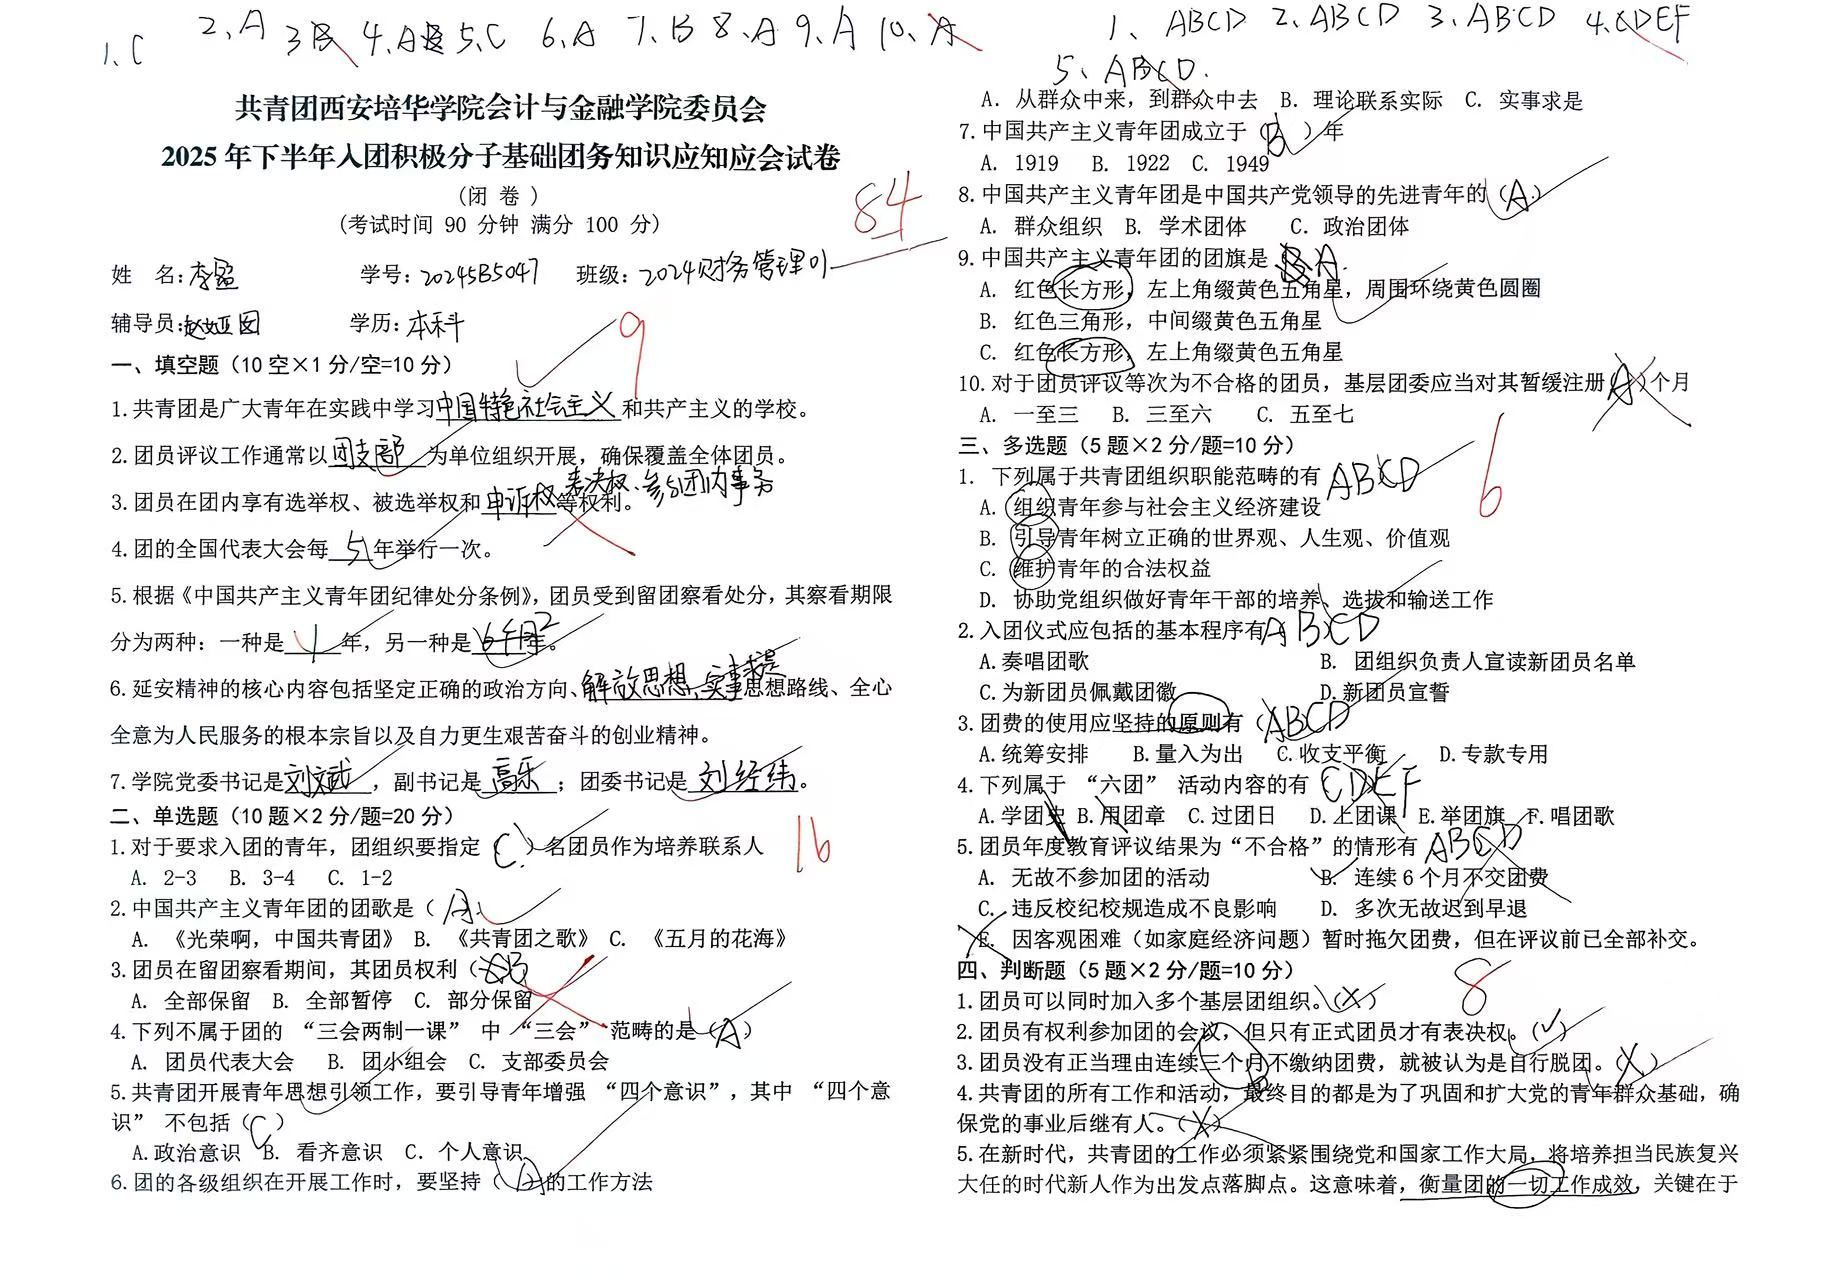 1、C 2、A 3、B 4、A 5、C 6、A 7、B 8、A 9、A 10、A
共青团西安培华学院会计与金融学院委员会
2025 年下半年入团积极分子基础团务知识应知应会试卷
(闭 卷 )
(考试时间 90 分钟 满分 100 分)
84
姓 名:李盈 学号:20245B5047 班级:2024财务管理01
辅导员: 学历:本科
一、填空题（10 空×1 分/空=10 分） 9
1.共青团是广大青年在实践中学习中国特色社会主义和共产主义的学校。
2.团员评议工作通常以团支部为单位组织开展，确保覆盖全体团员。
3.团员在团内享有选举权、被选举权和申诉权、表决权、参与团内事务等权利。
4.团的全国代表大会每5年举行一次。
5.根据《中国共产主义青年团纪律处分条例》，团员受到留团察看处分，其察看期限
分为两种：一种是1年，另一种是6个月2年。
6.延安精神的核心内容包括坚定正确的政治方向、解放思想、实事求是思想路线、全心
全意为人民服务的根本宗旨以及自力更生艰苦奋斗的创业精神。
7.学院党委书记是刘斌，副书记是高乐；团委书记是刘经纬。
二、单选题（10 题×2 分/题=20 分） 16
1.对于要求入团的青年，团组织要指定（C）名团员作为培养联系人
A. 2-3 B. 3-4 C. 1-2
2.中国共产主义青年团的团歌是（A）
A. 《光荣啊，中国共青团》 B. 《共青团之歌》 C. 《五月的花海》
3.团员在留团察看期间，其团员权利（B）
A. 全部保留 B. 全部暂停 C. 部分保留
4.下列不属于团的 “三会两制一课” 中 “三会” 范畴的是（A）
A. 团员代表大会 B. 团小组会 C. 支部委员会
5.共青团开展青年思想引领工作，要引导青年增强 “四个意识”，其中 “四个意
识” 不包括（C）
A.政治意识 B. 看齐意识 C. 个人意识
6.团的各级组织在开展工作时，要坚持（A）的工作方法
1、ABCD 2、ABCD 3、ABCD 4、CDEF
5、ABCD.
A. 从群众中来，到群众中去 B. 理论联系实际 C. 实事求是
7.中国共产主义青年团成立于（B）年
A. 1919 B. 1922 C. 1949
8.中国共产主义青年团是中国共产党领导的先进青年的（A）
A. 群众组织 B. 学术团体 C. 政治团体
9.中国共产主义青年团的团旗是 B A.
A. 红色长方形，左上角缀黄色五角星，周围环绕黄色圆圈
B. 红色三角形，中间缀黄色五角星
C. 红色长方形，左上角缀黄色五角星
10.对于团员评议等次为不合格的团员，基层团委应当对其暂缓注册（A）个月
A. 一至三 B. 三至六 C. 五至七
三、多选题（5 题×2 分/题=10 分） 6
1. 下列属于共青团组织职能范畴的有 ABCD
A. 组织青年参与社会主义经济建设
B. 引导青年树立正确的世界观、人生观、价值观
C. 维护青年的合法权益
D. 协助党组织做好青年干部的培养、选拔和输送工作
2.入团仪式应包括的基本程序有ABCD
A.奏唱团歌 B. 团组织负责人宣读新团员名单
C.为新团员佩戴团徽 D.新团员宣誓
3.团费的使用应坚持的原则有（ABCD
A.统筹安排 B.量入为出 C.收支平衡 D.专款专用
4.下列属于 “六团” 活动内容的有 CDEF
A.学团史 B.用团章 C.过团日 D.上团课 E.举团旗 F.唱团歌
5.团员年度教育评议结果为“不合格”的情形有 ABCD
A. 无故不参加团的活动 B. 连续 6 个月不交团费
C. 违反校纪校规造成不良影响 D. 多次无故迟到早退
E. 因客观困难（如家庭经济问题）暂时拖欠团费，但在评议前已全部补交。
四、判断题（5 题×2 分/题=10 分） 8
1.团员可以同时加入多个基层团组织。（×）
2.团员有权利参加团的会议，但只有正式团员才有表决权。（√）
3.团员没有正当理由连续三个月不缴纳团费，就被认为是自行脱团。（×）
4.共青团的所有工作和活动，最终目的都是为了巩固和扩大党的青年群众基础，确
保党的事业后继有人。（×）
5.在新时代，共青团的工作必须紧紧围绕党和国家工作大局，将培养担当民族复兴
大任的时代新人作为出发点落脚点。这意味着，衡量团的一切工作成效，关键在于